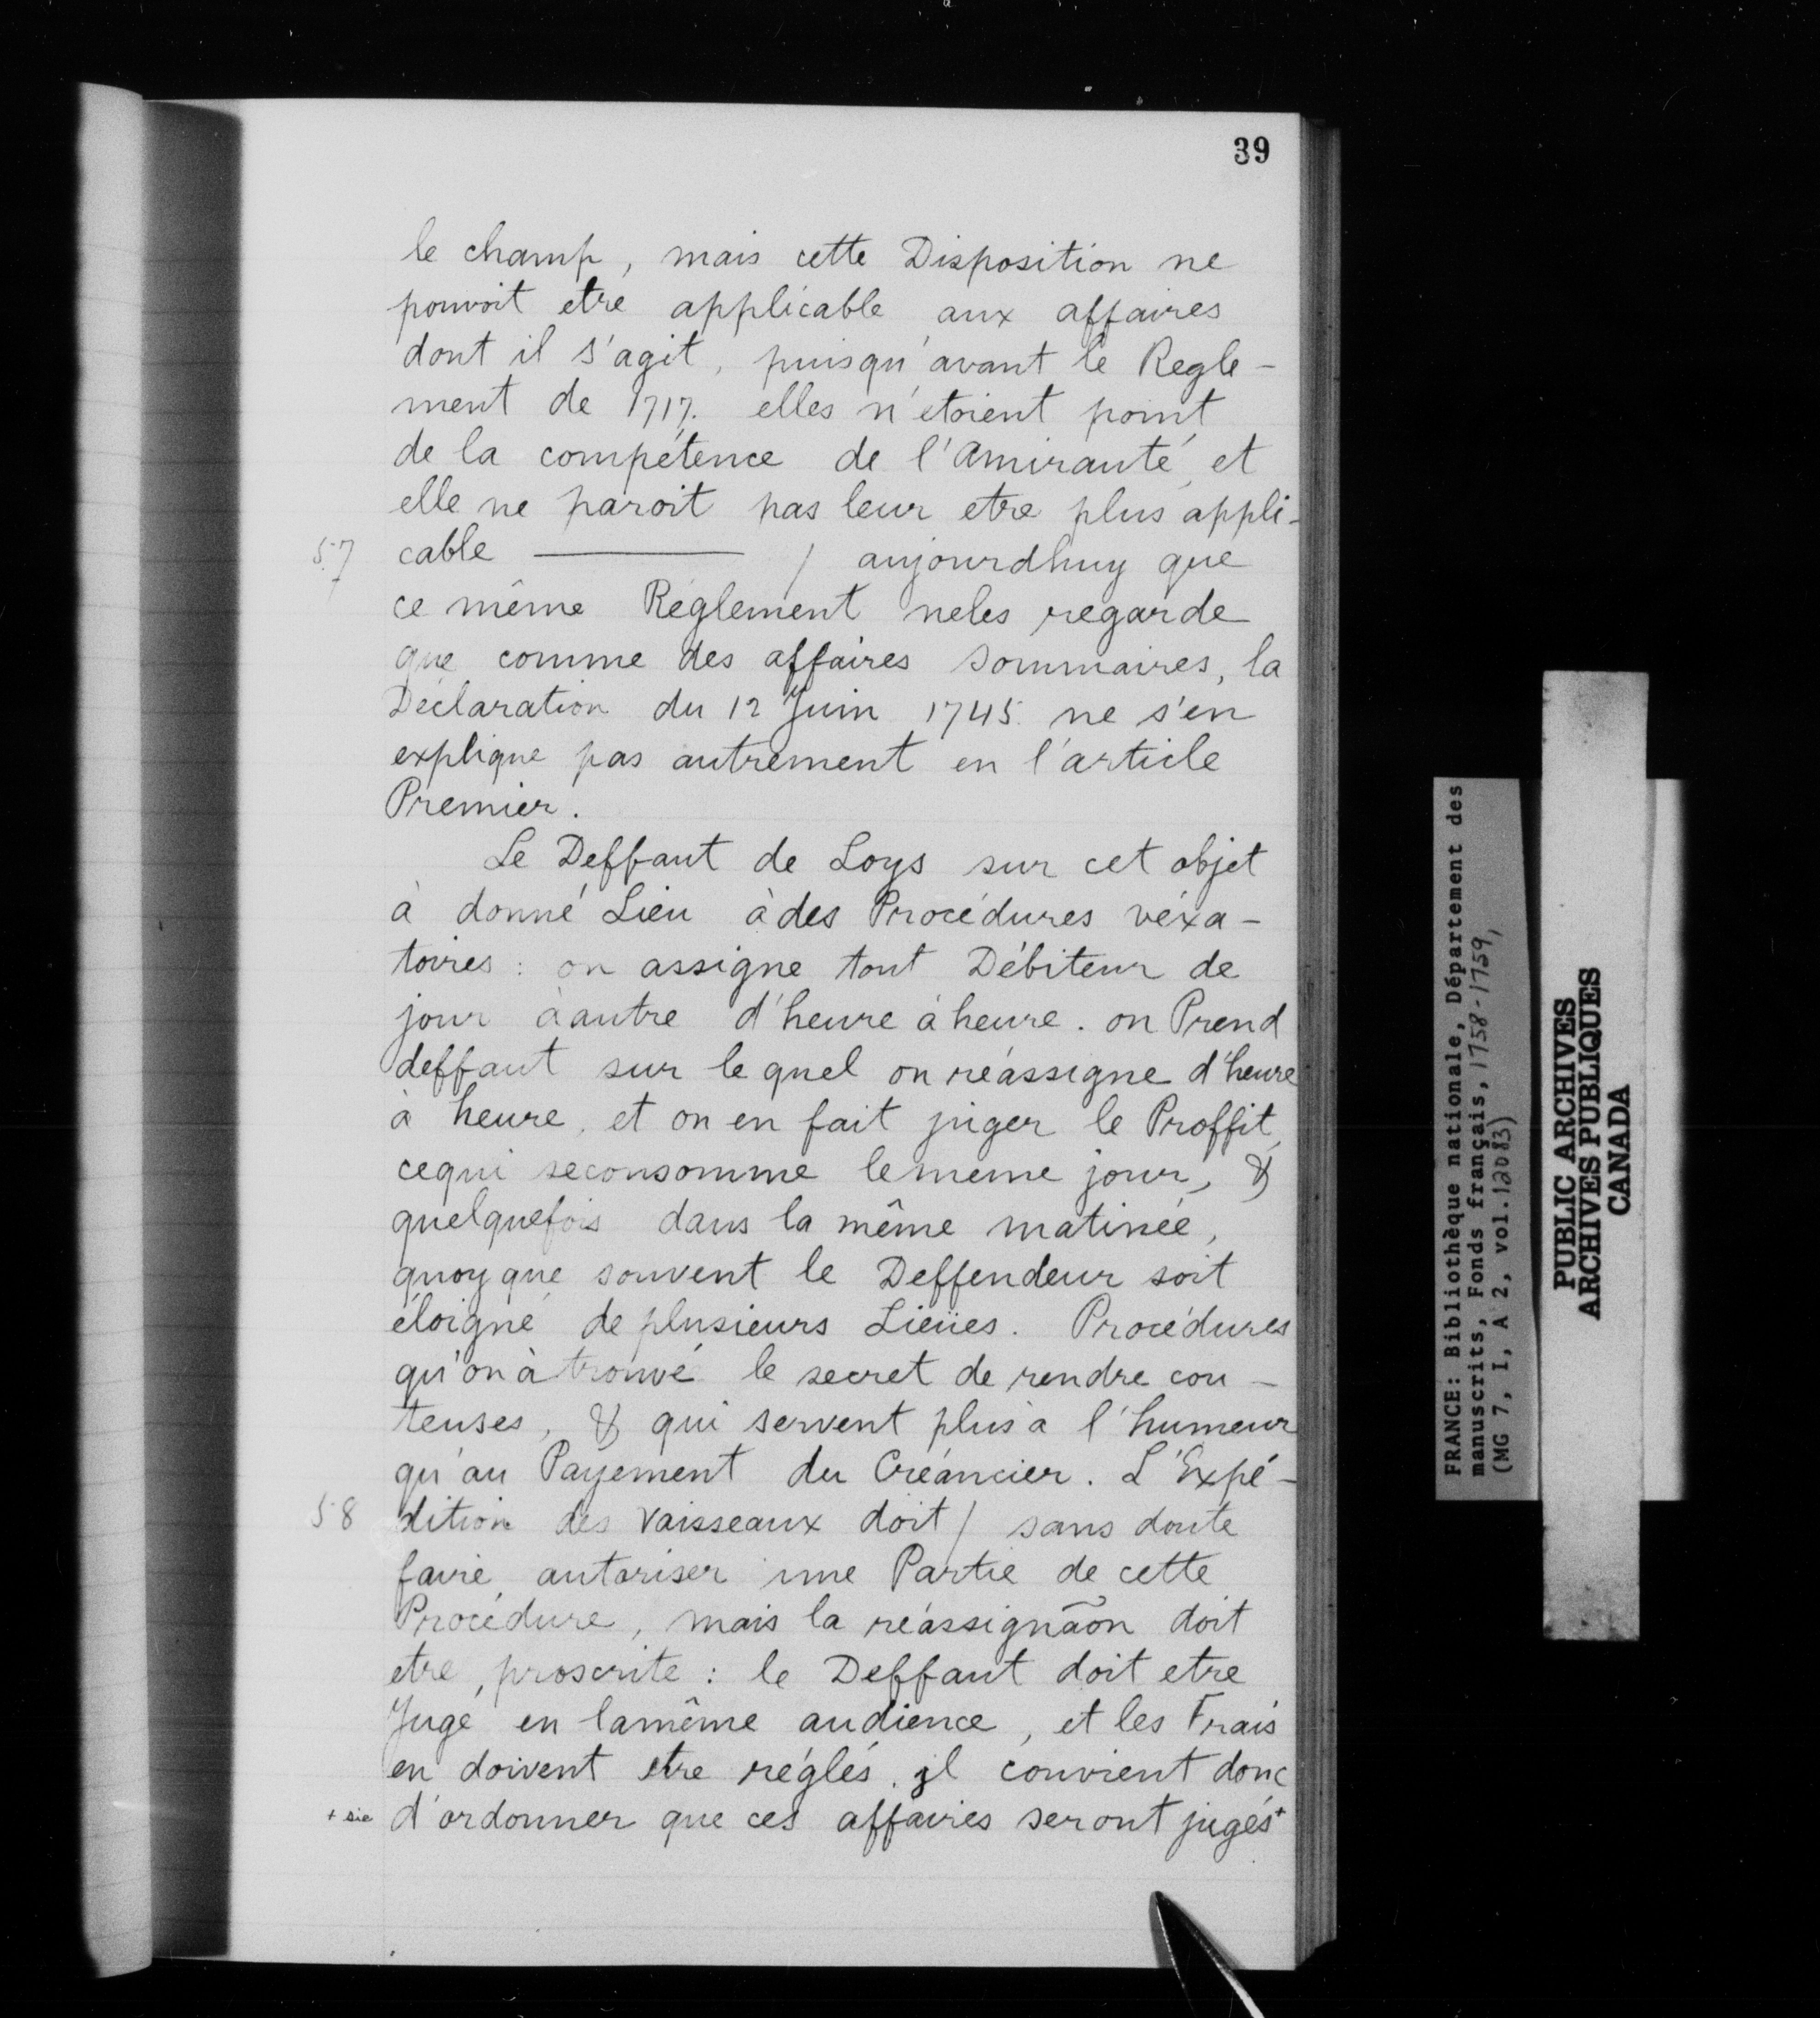 39
le champ, mais cette Disposition ne
pouvoit etre applicable aux affaires
dont il s'agit, puisqu'avant le Regle-
ment de 1717. elles n'etoient point
de la compétence de l'amirauté, et
elle ne paroit pas leur etre plus appli-
57 cable ——— / aujourdhuy que
ce même Réglement neles regarde
que comme des affaires sommaires, la
Déclaration du 12 Juin 1745. ne s'en
explique pas autrement en l'article
Premier.
Le Deffaut de Loys sur cet objet
à donné Lieu à des Procédures véxa-
toires : on assigne tout Débiteur de
jour à autre d'heure à heure. on Prend
deffaut sur le quel on réassigne d'heure
à heure, et on en fait juger le Proffit,
cequi seconsomme lememe jour, &
quelquefois dans la même matinée,
quoyque souvent le Deffendeur soit
éloigné de plusieurs Lieües. Procédures
qu'on à trouvé le secret de rendre cou-
teuses, & qui servent plus à l'humeur
qu'au Payement du Créancier. L'Expé-
58 dition des Vaisseaux doit / sans doute
faire autoriser une Partie de cette
Procédure, mais la réassignãon doit
etre proscrite : le Deffaut doit etre
Jugé en lamême audience, et les Frais
en doivent etre réglés. il convient donc
+ sic d'ordonner que ces affaires seront jugés+
FRANCE: Bibliothèque nationale, Département des
manuscrits, Fonds français, 1758-1759,
(MG 7, I, A 2, vol. 12083)
PUBLIC ARCHIVES
ARCHIVES PUBLIQUES
CANADA